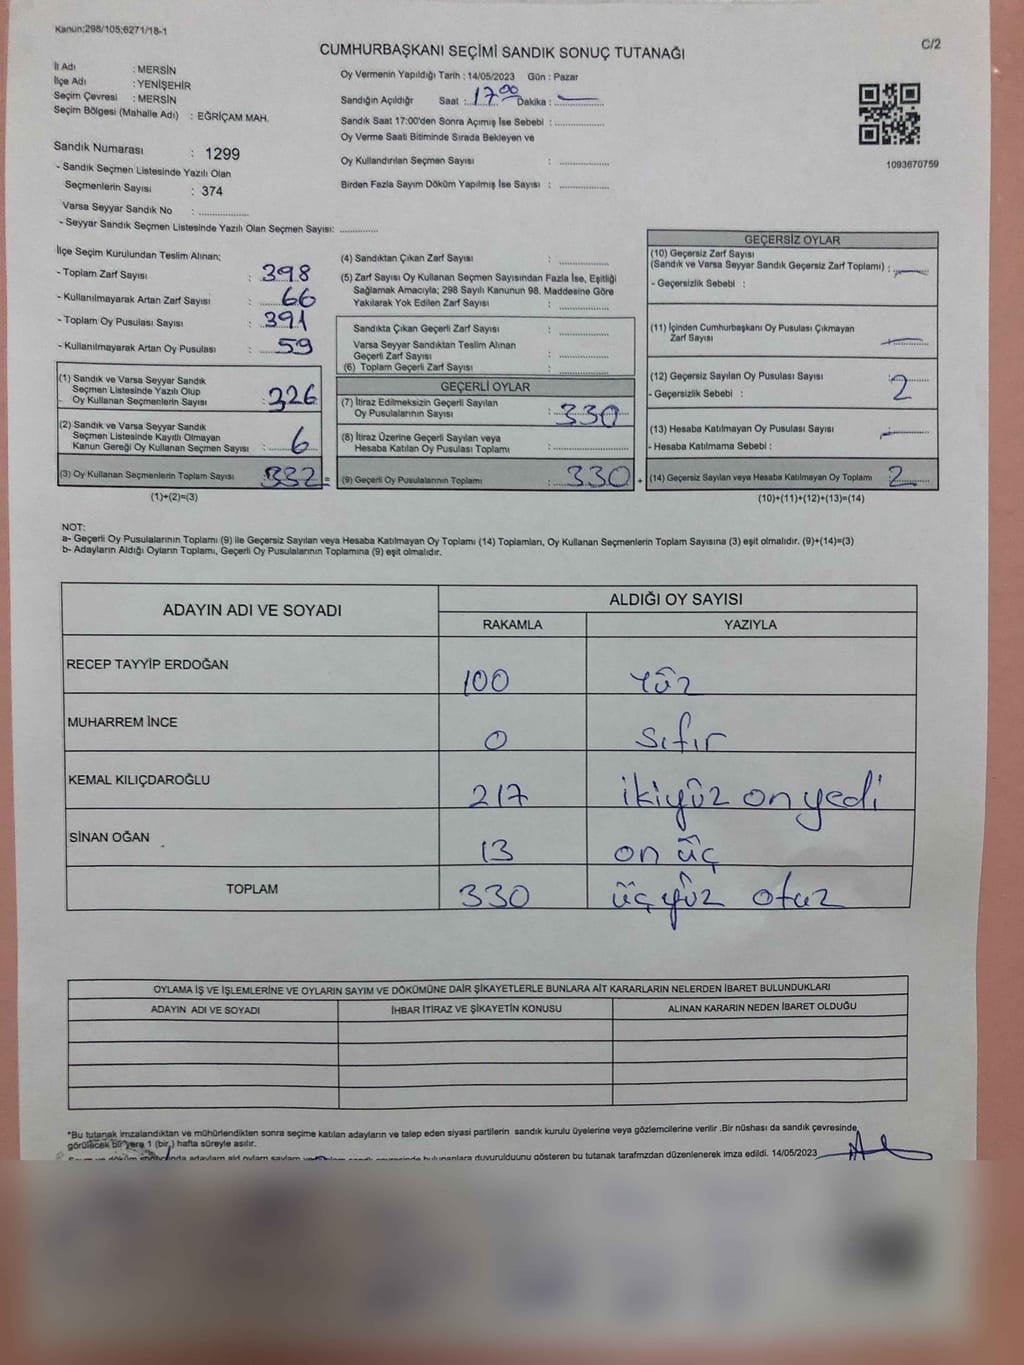 Kanun:298/105;6271/18-1
C/2
CUMHURBAŞKANI SEÇİMİ SANDIK SONUÇ TUTANAĞI
İl Adı : MERSİN
İlçe Adı : YENİŞEHİR
Seçim Çevresi : MERSİN
Seçim Bölgesi (Mahalle Adı) : EĞRİÇAM MAH.
Sandık Numarası : 1299
- Sandık Seçmen Listesinde Yazılı Olan
Seçmenlerin Sayısı : 374
Varsa Seyyar Sandık No : ................
- Seyyar Sandık Seçmen Listesinde Yazılı Olan Seçmen Sayısı: ............
Oy Vermenin Yapıldığı Tarih : 14/05/2023 Gün : Pazar
Sandığın Açıldığı Saat : 17.00 Dakika : —
Sandık Saat 17:00'den Sonra Açımış İse Sebebi : ................
Oy Verme Saati Bitiminde Sırada Bekleyen ve
Oy Kullandırılan Seçmen Sayısı : ................
Birden Fazla Sayım Döküm Yapılmış İse Sayısı : ................
1093670759
İlçe Seçim Kurulundan Teslim Alınan;
- Toplam Zarf Sayısı : 398
- Kullanılmayarak Artan Zarf Sayısı : 66
- Toplam Oy Pusulası Sayısı : 391
- Kullanılmayarak Artan Oy Pusulası : 59
(1) Sandık ve Varsa Seyyar Sandık
Seçmen Listesinde Yazılı Olup
Oy Kullanan Seçmenlerin Sayısı : 326
(2) Sandık ve Varsa Seyyar Sandık
Seçmen Listesinde Kayıtlı Olmayan
Kanun Gereği Oy Kullanan Seçmen Sayısı : 6
(3) Oy Kullanan Seçmenlerin Toplam Sayısı : 332 =
(1)+(2)=(3)
(4) Sandıktan Çıkan Zarf Sayısı : ................
(5) Zarf Sayısı Oy Kullanan Seçmen Sayısından Fazla İse, Eşitliği
Sağlamak Amacıyla; 298 Sayılı Kanunun 98. Maddesine Göre
Yakılarak Yok Edilen Zarf Sayısı : ................
Sandıkta Çıkan Geçerli Zarf Sayısı : ................
Varsa Seyyar Sandıktan Teslim Alınan
Geçerli Zarf Sayısı : ................
(6) Toplam Geçerli Zarf Sayısı : ................
GEÇERLİ OYLAR
(7) İtiraz Edilmeksizin Geçerli Sayılan
Oy Pusulalarının Sayısı : 330
(8) İtiraz Üzerine Geçerli Sayılan veya
Hesaba Katılan Oy Pusulası Toplamı : ................
(9) Geçerli Oy Pusulalarının Toplamı : 330 +
GEÇERSİZ OYLAR
(10) Geçersiz Zarf Sayısı
(Sandık ve Varsa Seyyar Sandık Geçersiz Zarf Toplamı) : —
- Geçersizlik Sebebi :
(11) İçinden Cumhurbaşkanı Oy Pusulası Çıkmayan
Zarf Sayısı : —
(12) Geçersiz Sayılan Oy Pusulası Sayısı : 2
- Geçersizlik Sebebi :
(13) Hesaba Katılmayan Oy Pusulası Sayısı : —
- Hesaba Katılmama Sebebi :
(14) Geçersiz Sayılan veya Hesaba Katılmayan Oy Toplamı : 2
(10)+(11)+(12)+(13)=(14)
NOT:
a- Geçerli Oy Pusulalarının Toplamı (9) ile Geçersiz Sayılan veya Hesaba Katılmayan Oy Toplamı (14) Toplamları, Oy Kullanan Seçmenlerin Toplam Sayısına (3) eşit olmalıdır. (9)+(14)=(3)
b- Adayların Aldığı Oyların Toplamı, Geçerli Oy Pusulalarının Toplamına (9) eşit olmalıdır.
ADAYIN ADI VE SOYADI ALDIĞI OY SAYISI
RAKAMLA YAZIYLA
RECEP TAYYİP ERDOĞAN 100 Yüz
MUHARREM İNCE 0 sıfır
KEMAL KILIÇDAROĞLU 217 ikiyüz onyedi
SİNAN OĞAN 13 on üç
TOPLAM 330 üçyüz otuz
OYLAMA İŞ VE İŞLEMLERİNE VE OYLARIN SAYIM VE DÖKÜMÜNE DAİR ŞİKAYETLERLE BUNLARA AİT KARARLARIN NELERDEN İBARET BULUNDUKLARI
ADAYIN ADI VE SOYADI İHBAR İTİRAZ VE ŞİKAYETİN KONUSU ALINAN KARARIN NEDEN İBARET OLDUĞU
*Bu tutanak imzalandıktan ve mühürlendikten sonra seçime katılan adayların ve talep eden siyasi partilerin sandık kurulu üyelerine veya gözlemcilerine verilir .Bir nüshası da sandık çevresinde,
görülecek bir yere 1 (bir,) hafta süreyle asılır.
duyurulduunu gösteren bu tutanak tarafmzdan düzenlenerek imza edildi. 14/05/2023